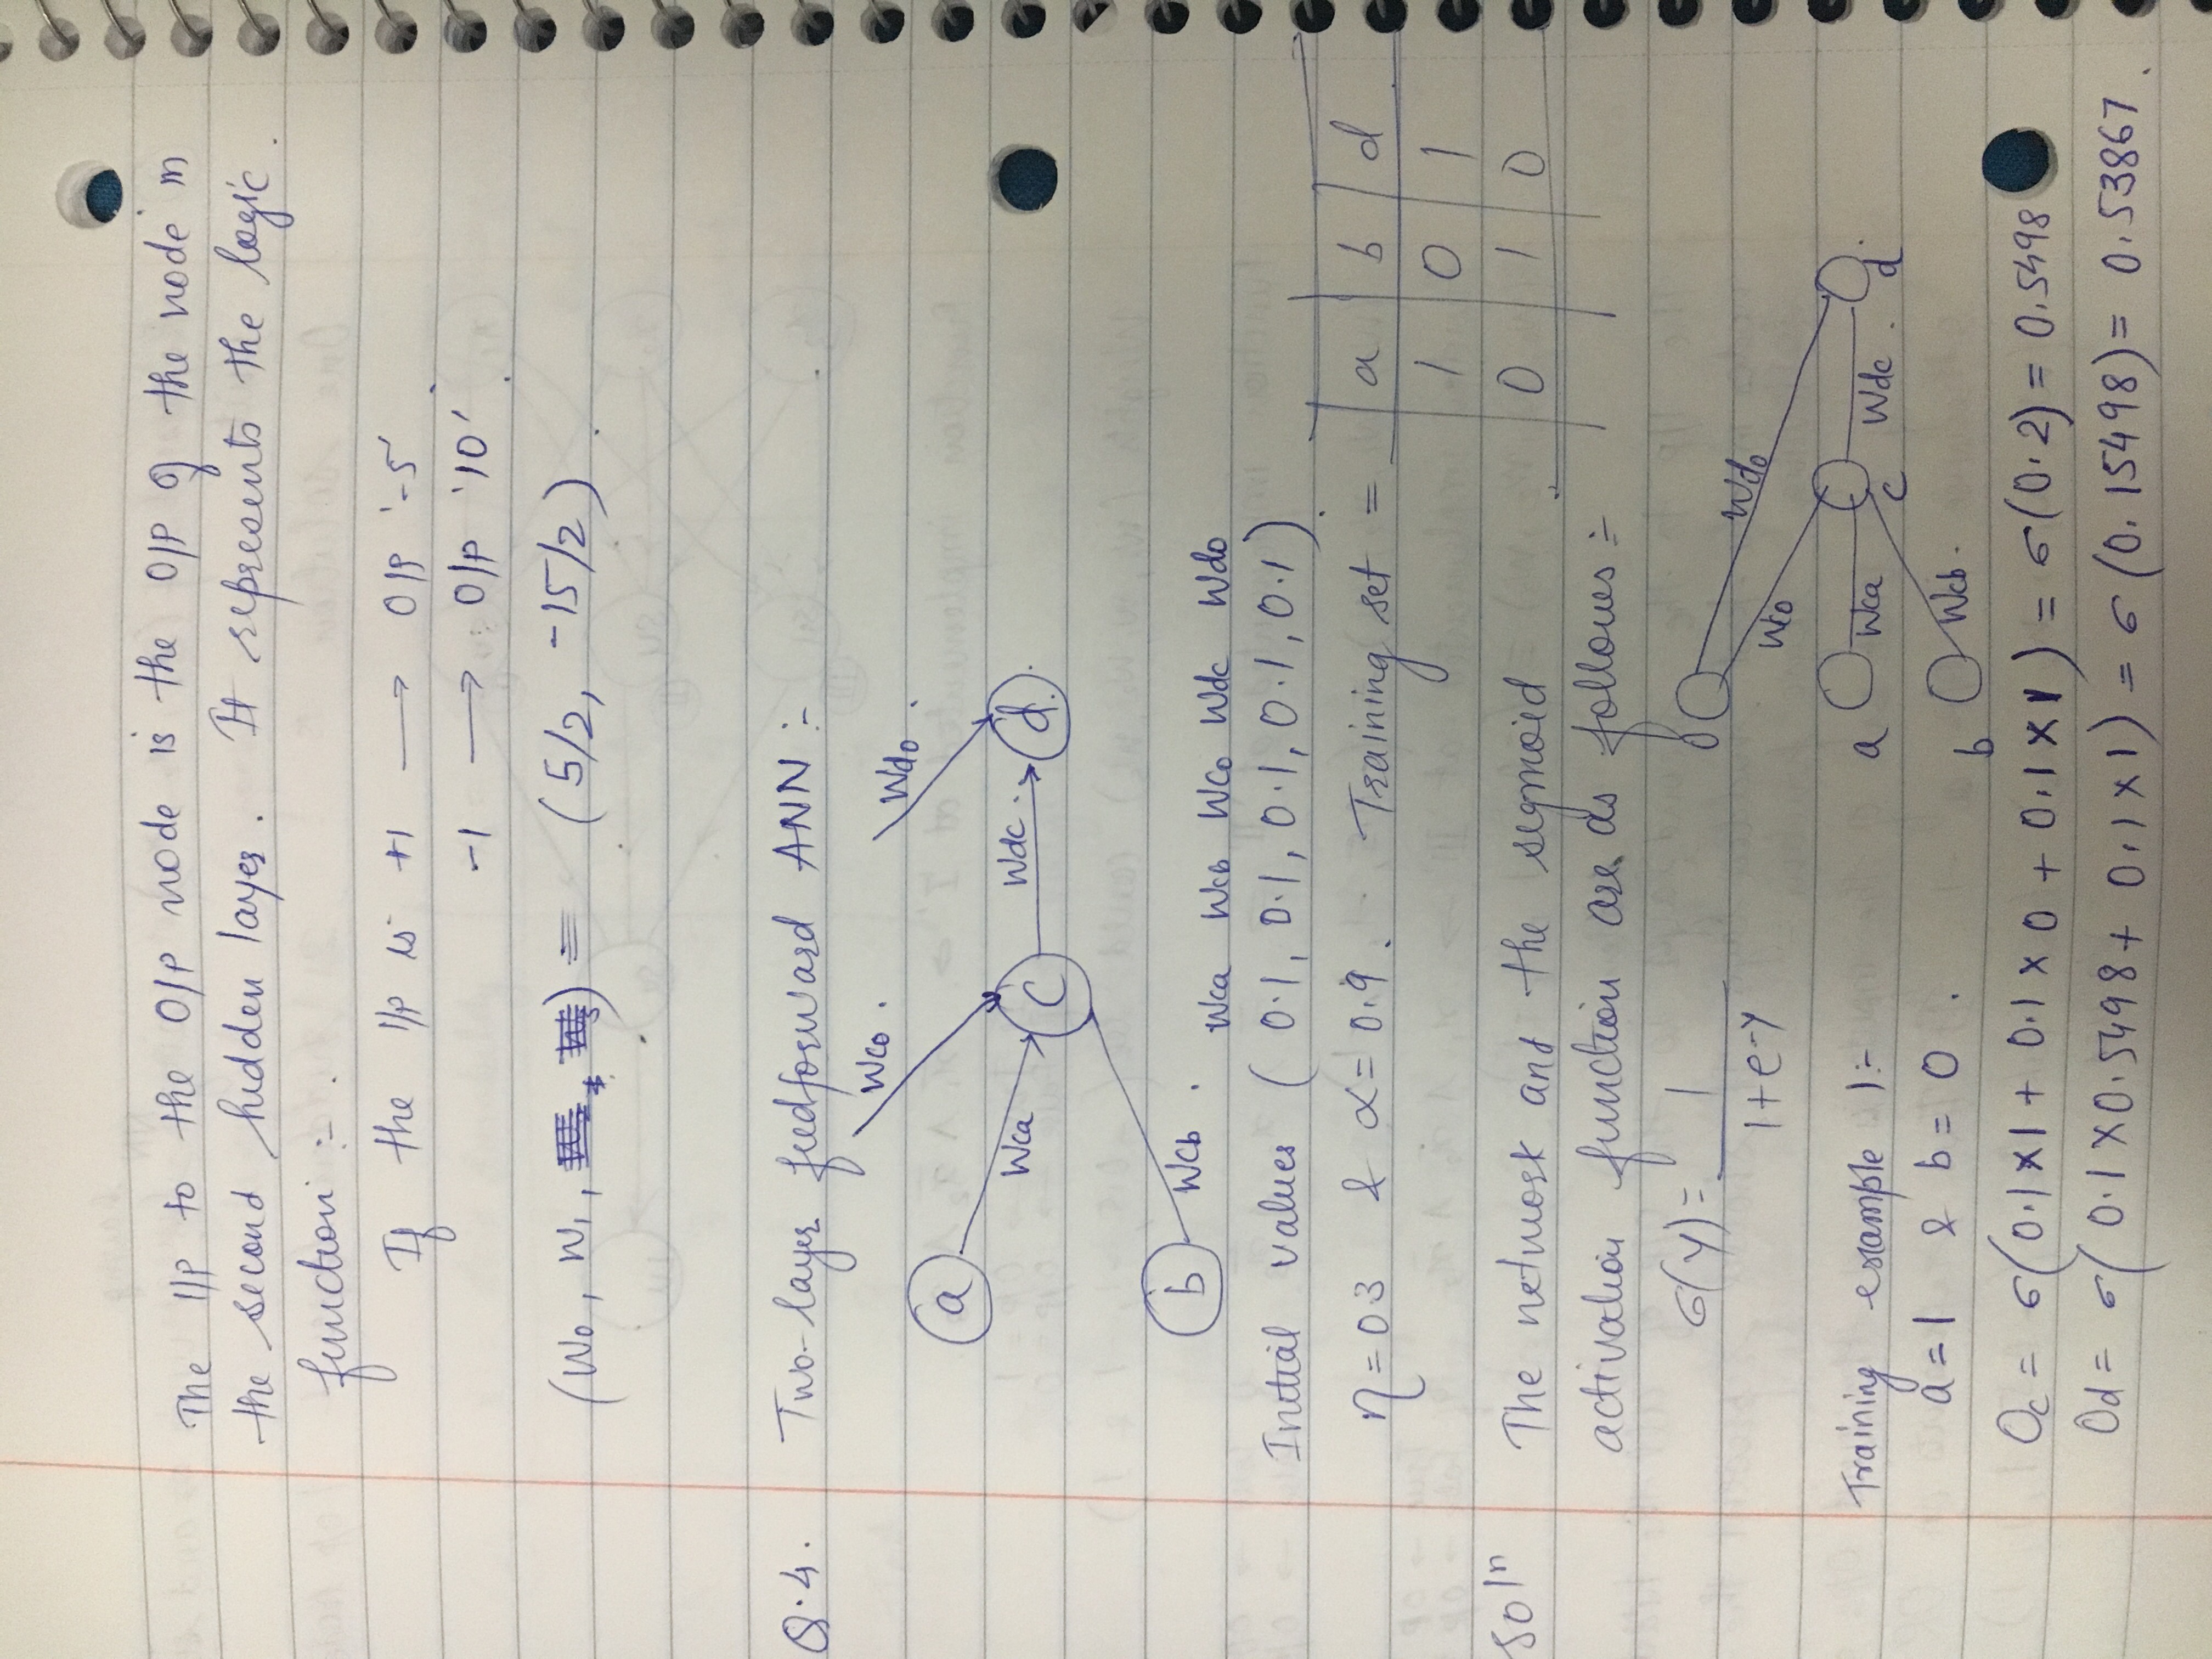 The I/P to the O/P node is the O/P of the node in
the second hidden layer. It represents the logic.
function :- .
If the I/P is +1 → O/P '-5'.
-1 → O/P '10'.
(W0, W1, ) = (5/2, -15/2).
Q.4. Two-layer feedforward ANN :-
Wco.
Wdo.
a
Wca
c
Wdc.
d.
b
Wcb.
Wca Wcb Wco Wdc Wdo
Initial values (0.1, 0.1, 0.1, 0.1, 0.1).
η = 03 & α = 0.9. Training set =
a b d
1 0 1
0 1 0
Soln The network and the segmoid
activation function are as follows :-
σ(y) = 1
1+e-y
0
Wdo
Wco
a Wca c Wdc. d
b Wcb.
Training example 1:-
a = 1 & b = 0.
Oc = σ(0.1×1 + 0.1×0 + 0.1×1) = σ(0.2) = 0.5498
Od = σ(0.1×0.5498 + 0.1×1) = σ(0.15498) = 0.53867.